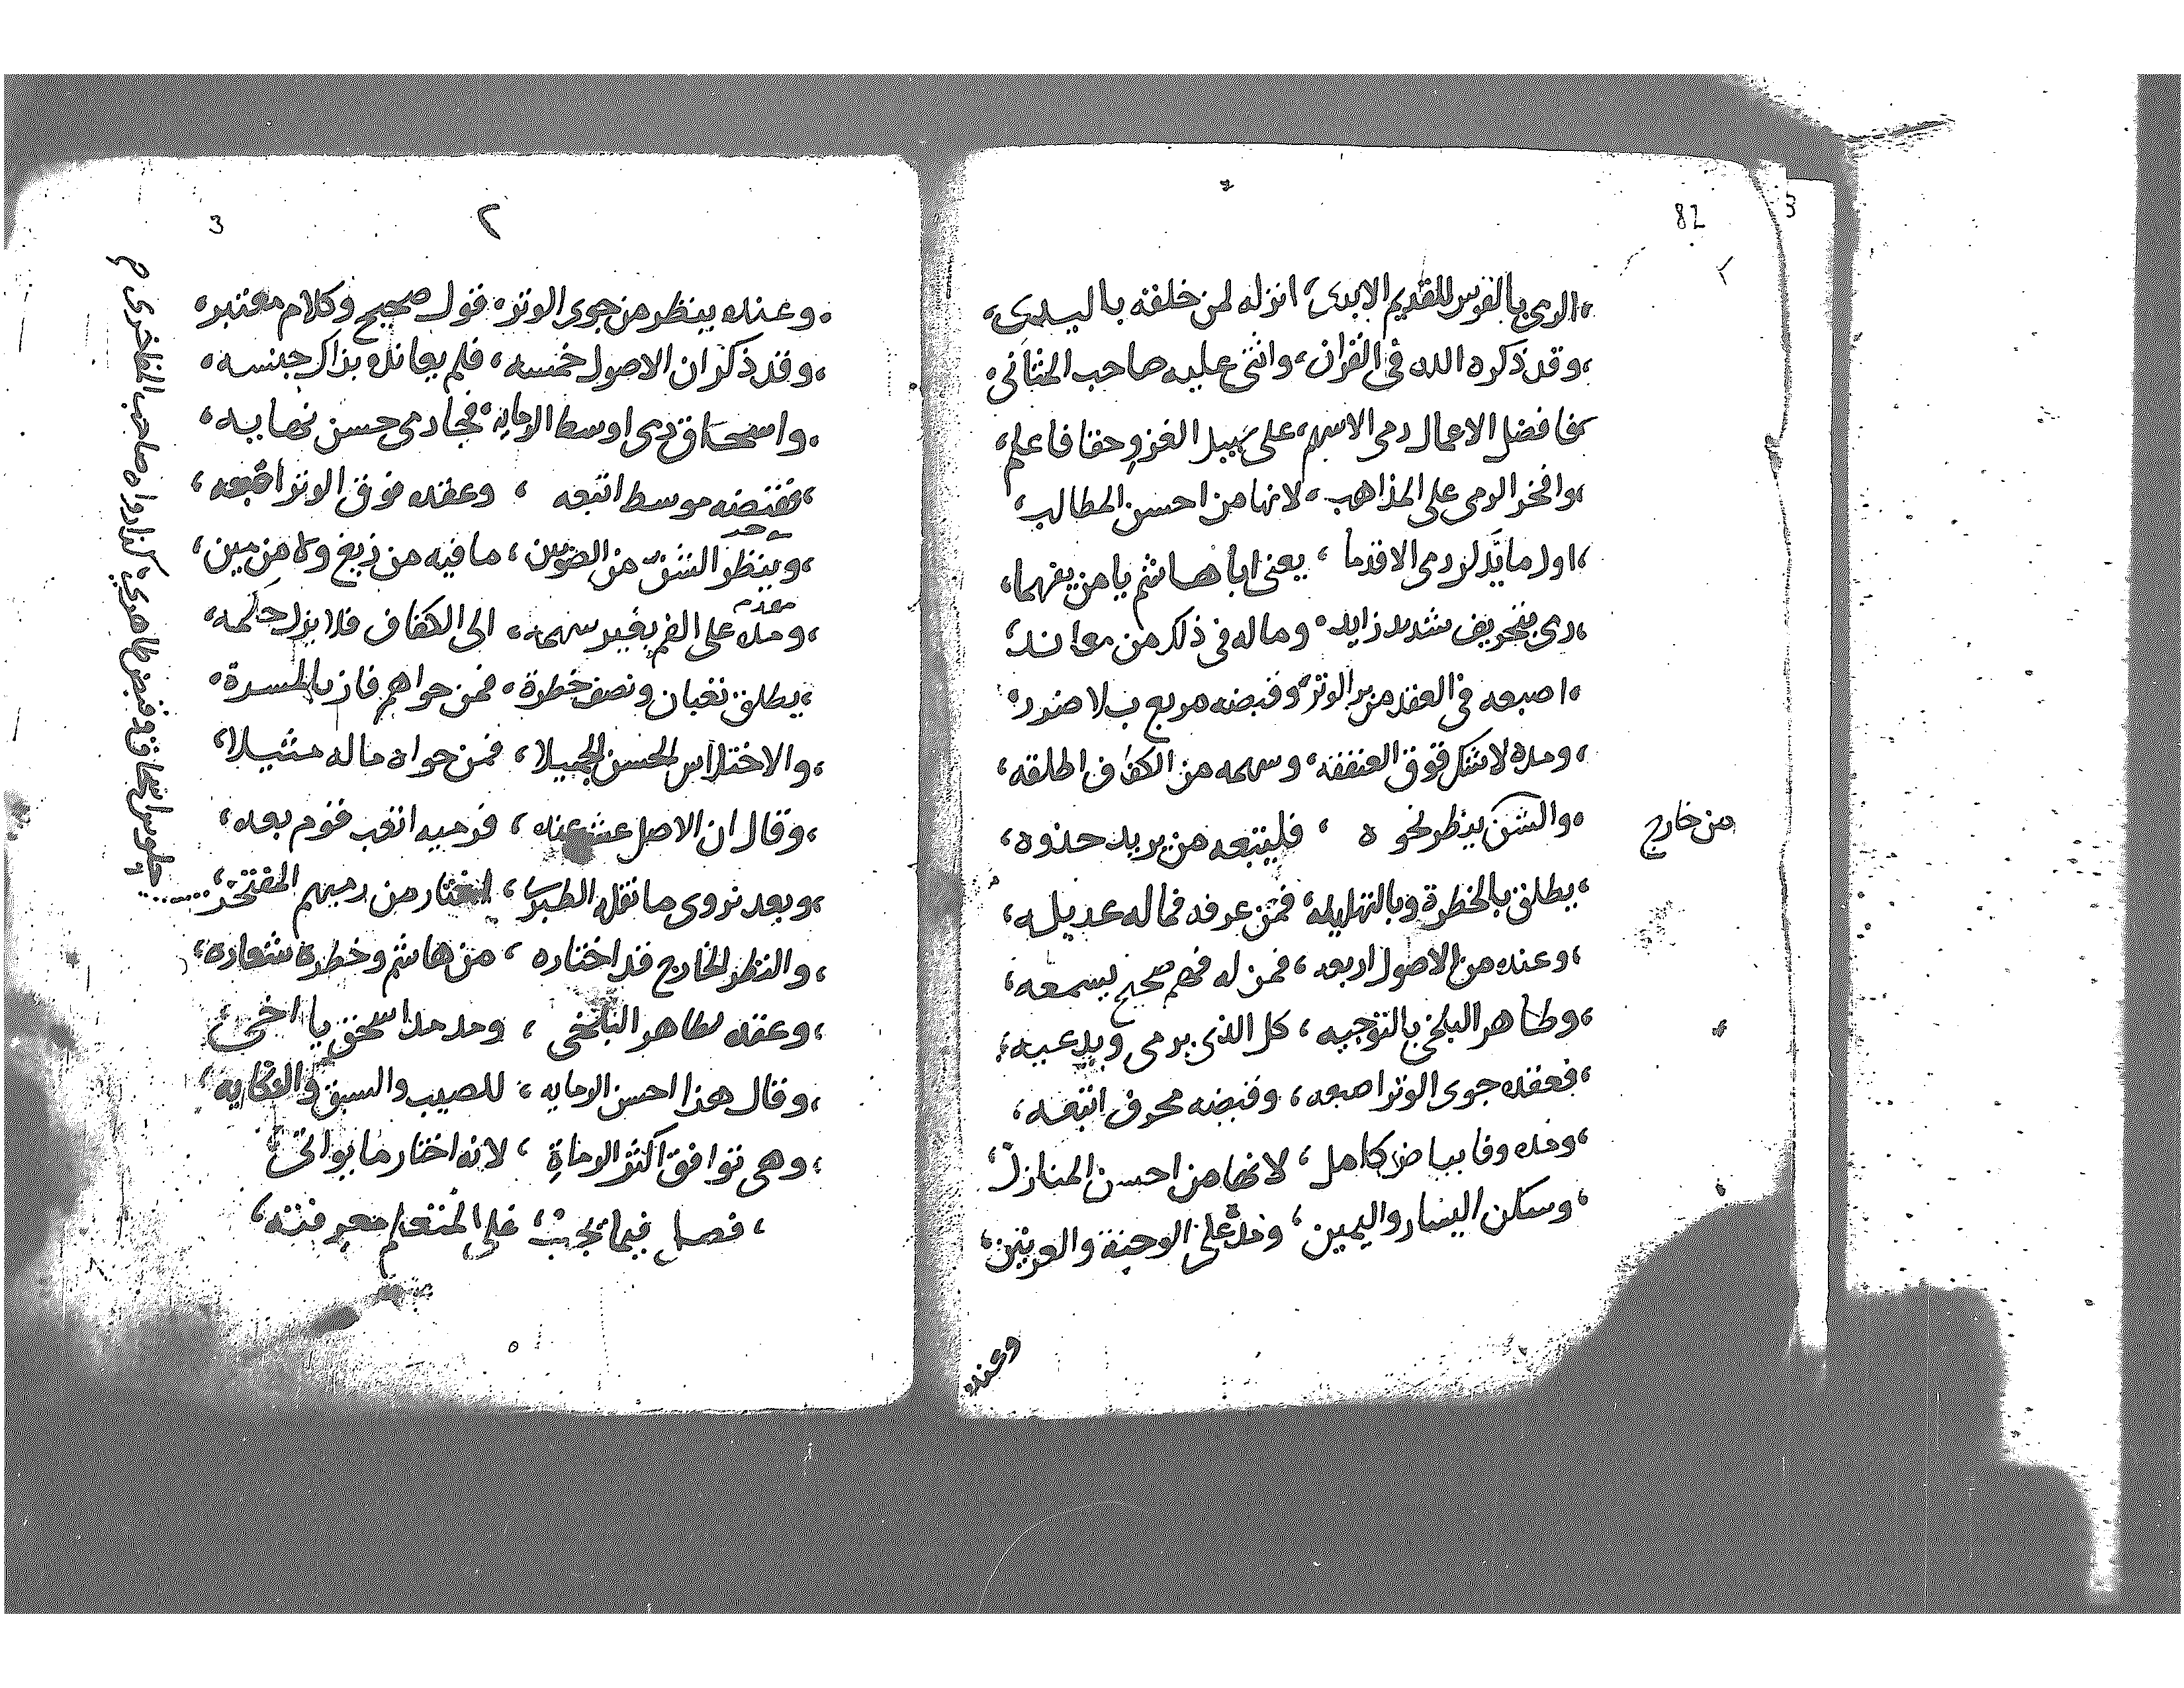 82
3
٢
الرمي بالقوس للقديم الابدى، انزله لمن خلقته باليدى،
وقد ذكره الله في القران، واثنى عليه صاحب المثاني،
فافضل الاعمال رمى الاسهم، على سبيل الغزو حقا فاعلم،
وافخر الرمى على المذاهب، لانها من احسن المطالب،
اول ما نبدا لرمى الاقدما، يعنى ابا هاشم يا من يفهما،
رمى بتحريف شديد زايد، وما له في ذلك من معاند،
اصبعه في العقد من بر الوتر، وقبضه مربع بلا ضرر،
ومده لا شك فوق العنفقه، وسهمه من الكفاف اطلقه،
والشن ينظر نحوه، فليتبعه من يريد حذوه،
من خارج
يطلق بالخطرة وبالتهليله، فمن عرفه فما له عديله،
وعنده من الاصول اربعه، فمن له فهم صحيح يسمعه،
وطاهر البلخي بالتوجيه، كل الذي يرمى ويدعيه،
فعقده جوى الوتر اصبعه، وقبضه محرف اتبعه،
ومده وفا بياض كامل، لانها من احسن المنازل،
وسكن اليسار واليمين، ومد على الوجنة والعرنين،
وعنده
3
٢
وعنده ينظر من جوى الوتر، قول صحيح وكلام معتبر،
وقد ذكر ان الاصول خمسه، فلم يعانده بذاك جنسه،
واسحاق رمى اوسط الرمايه، فجا رمى حسن نهايه،
فقبضه موسط اتبعه، وعقده فوق الوتر اصبعه،
وينظر الشق من الضوين، ما فيه من زيغ ولا من مين،
ومده على الفم بغير سهمه، الى الكفاف فلا يزل حكمه،
يطلق نغبان ونصف خطرة، فمن حواهم فاز بالمسرة،
والاختلاس الحسن الجميلا، فمن حواه ما له مثيلا،
وقال ان الاصل عشر عنده، فرميه اتعب قوم بعده،
وبعد نروى ما نقل الطبرى، اختار من رميهم المفتخر،
والنظر الخارج قد اختاره، من هاشم وخطرة شعاره،
وعقده لطاهر البلخي، ومد مد اسحق يا اخي،
وقال هذا احسن الرمايه، للصيب والسبق والنكايه،
وهى توافق اكثر الرماة، لانه اختار ما يواتى،
فصل فيما يجب على المتعلم معرفته،